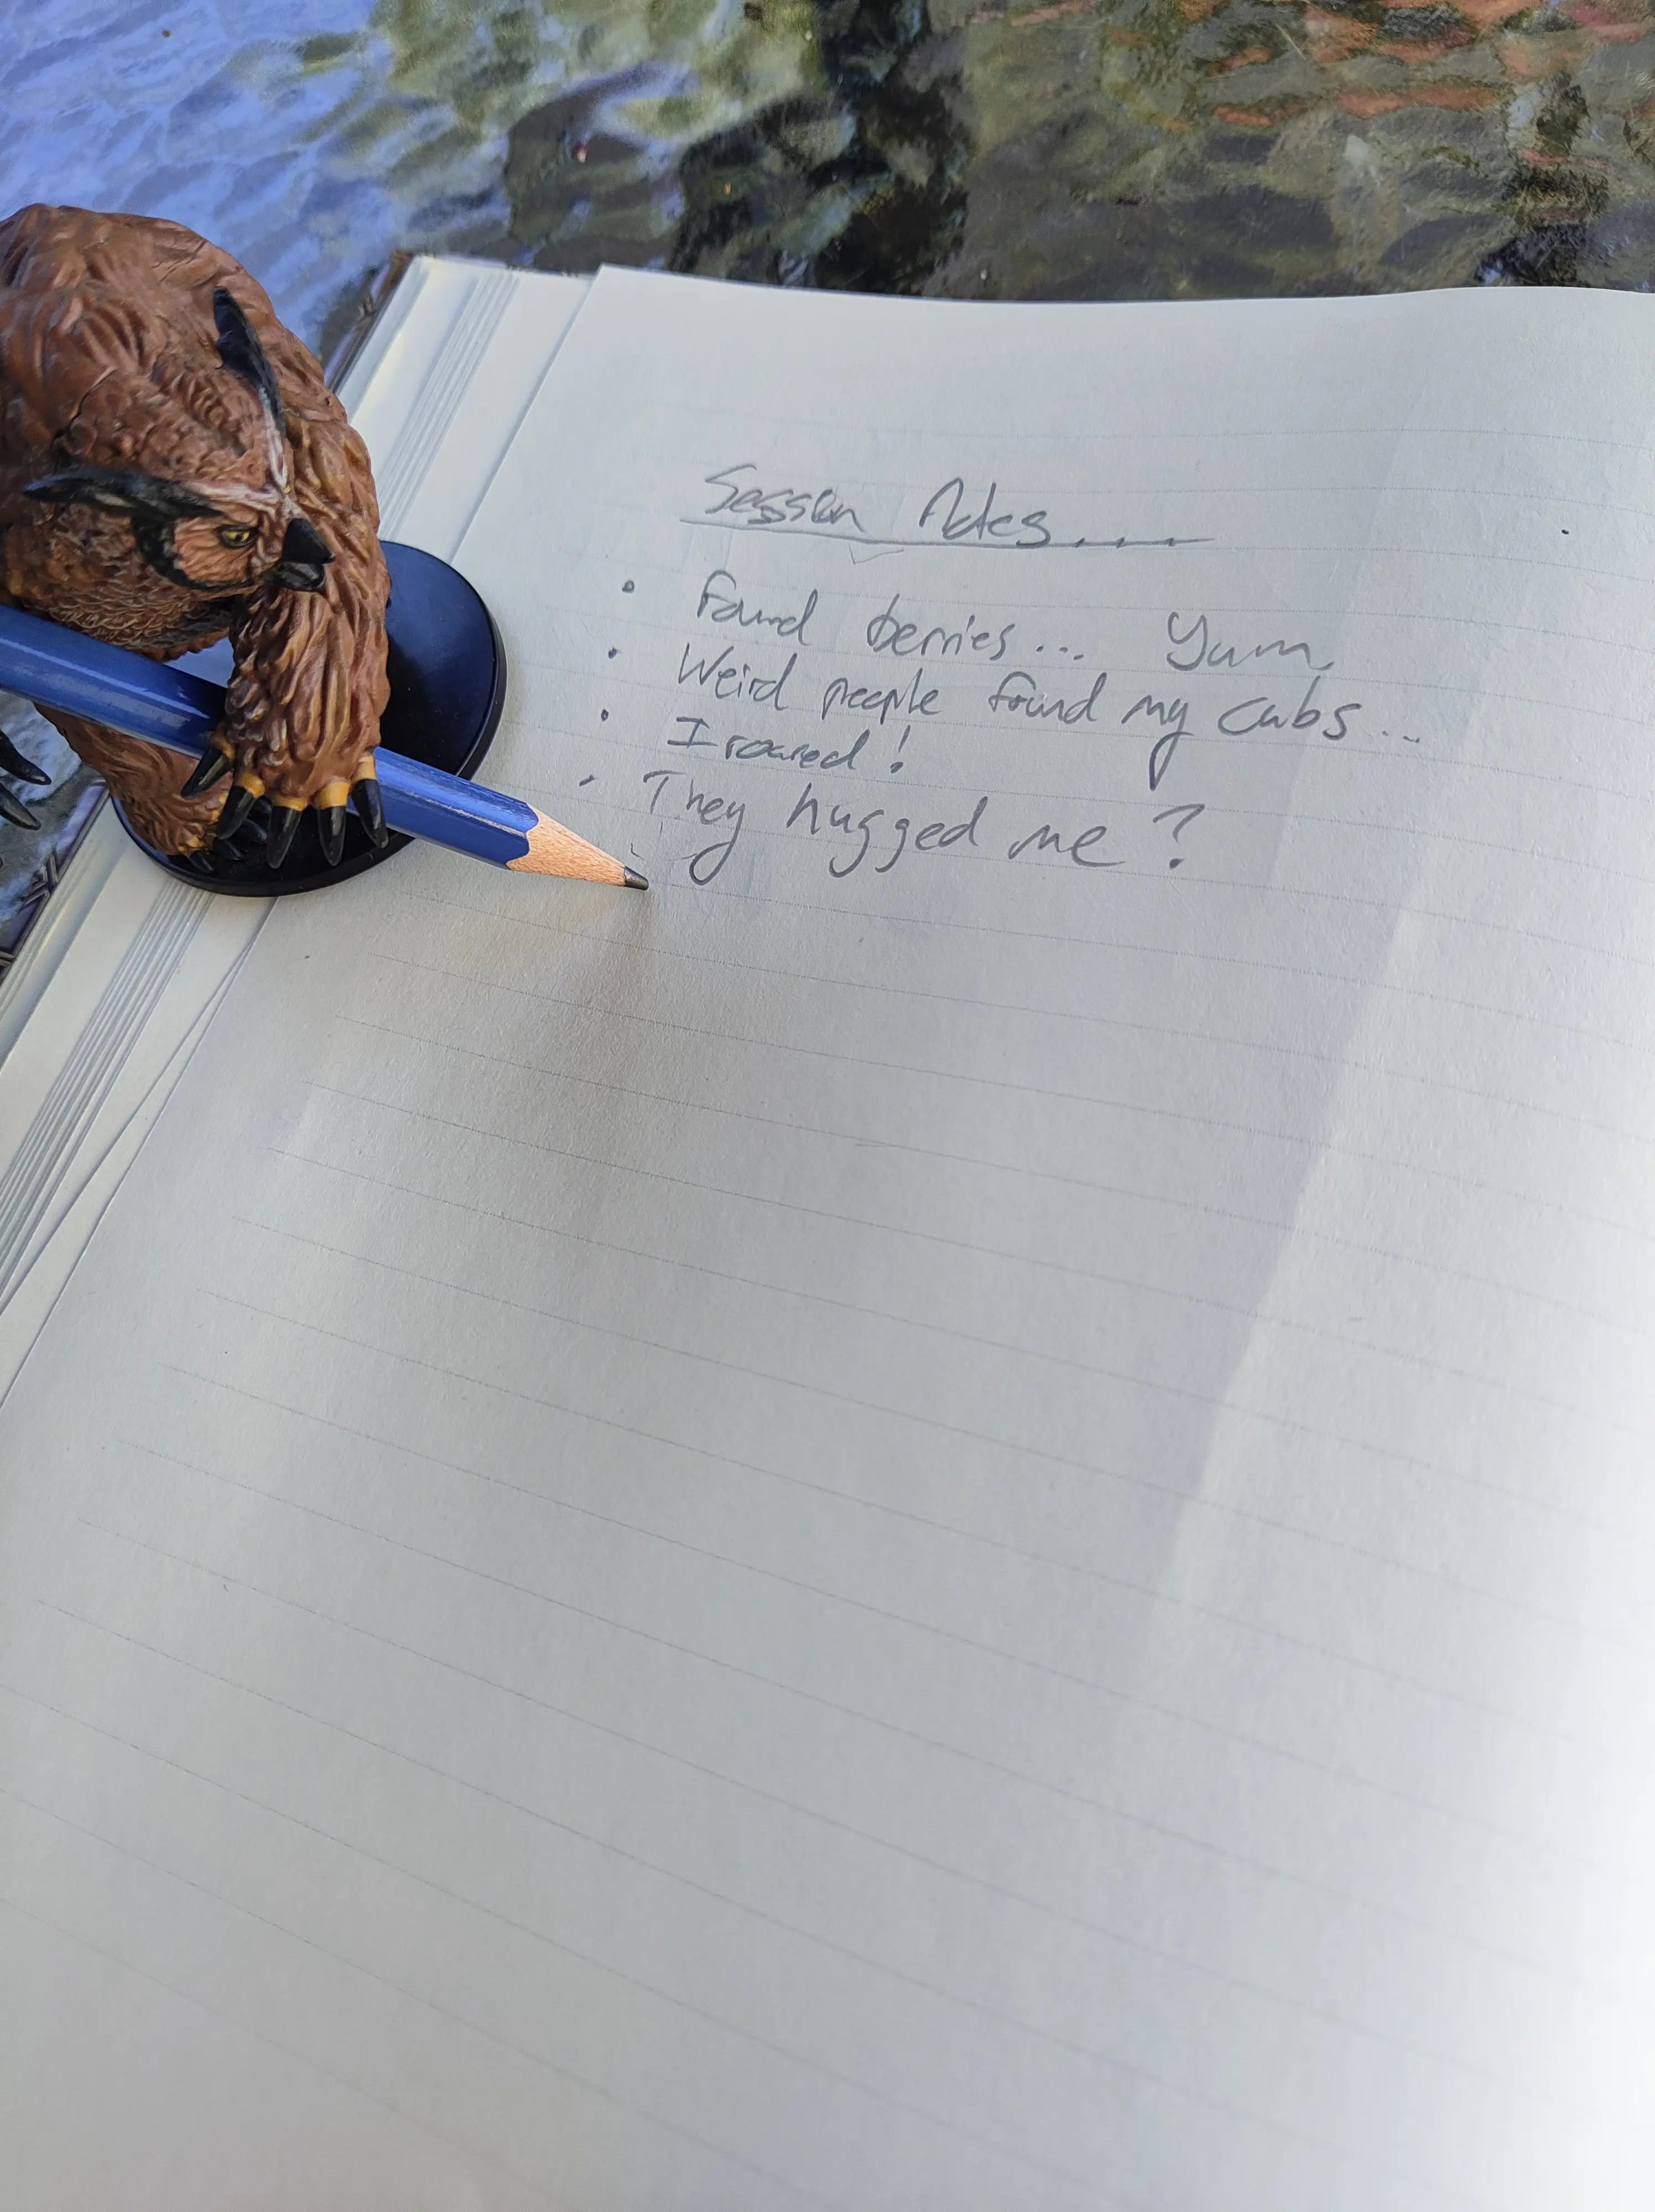 Session Notes....
• Found berries... Yum.
• Weird people found my cubs...
• I roared!
• They hugged me?